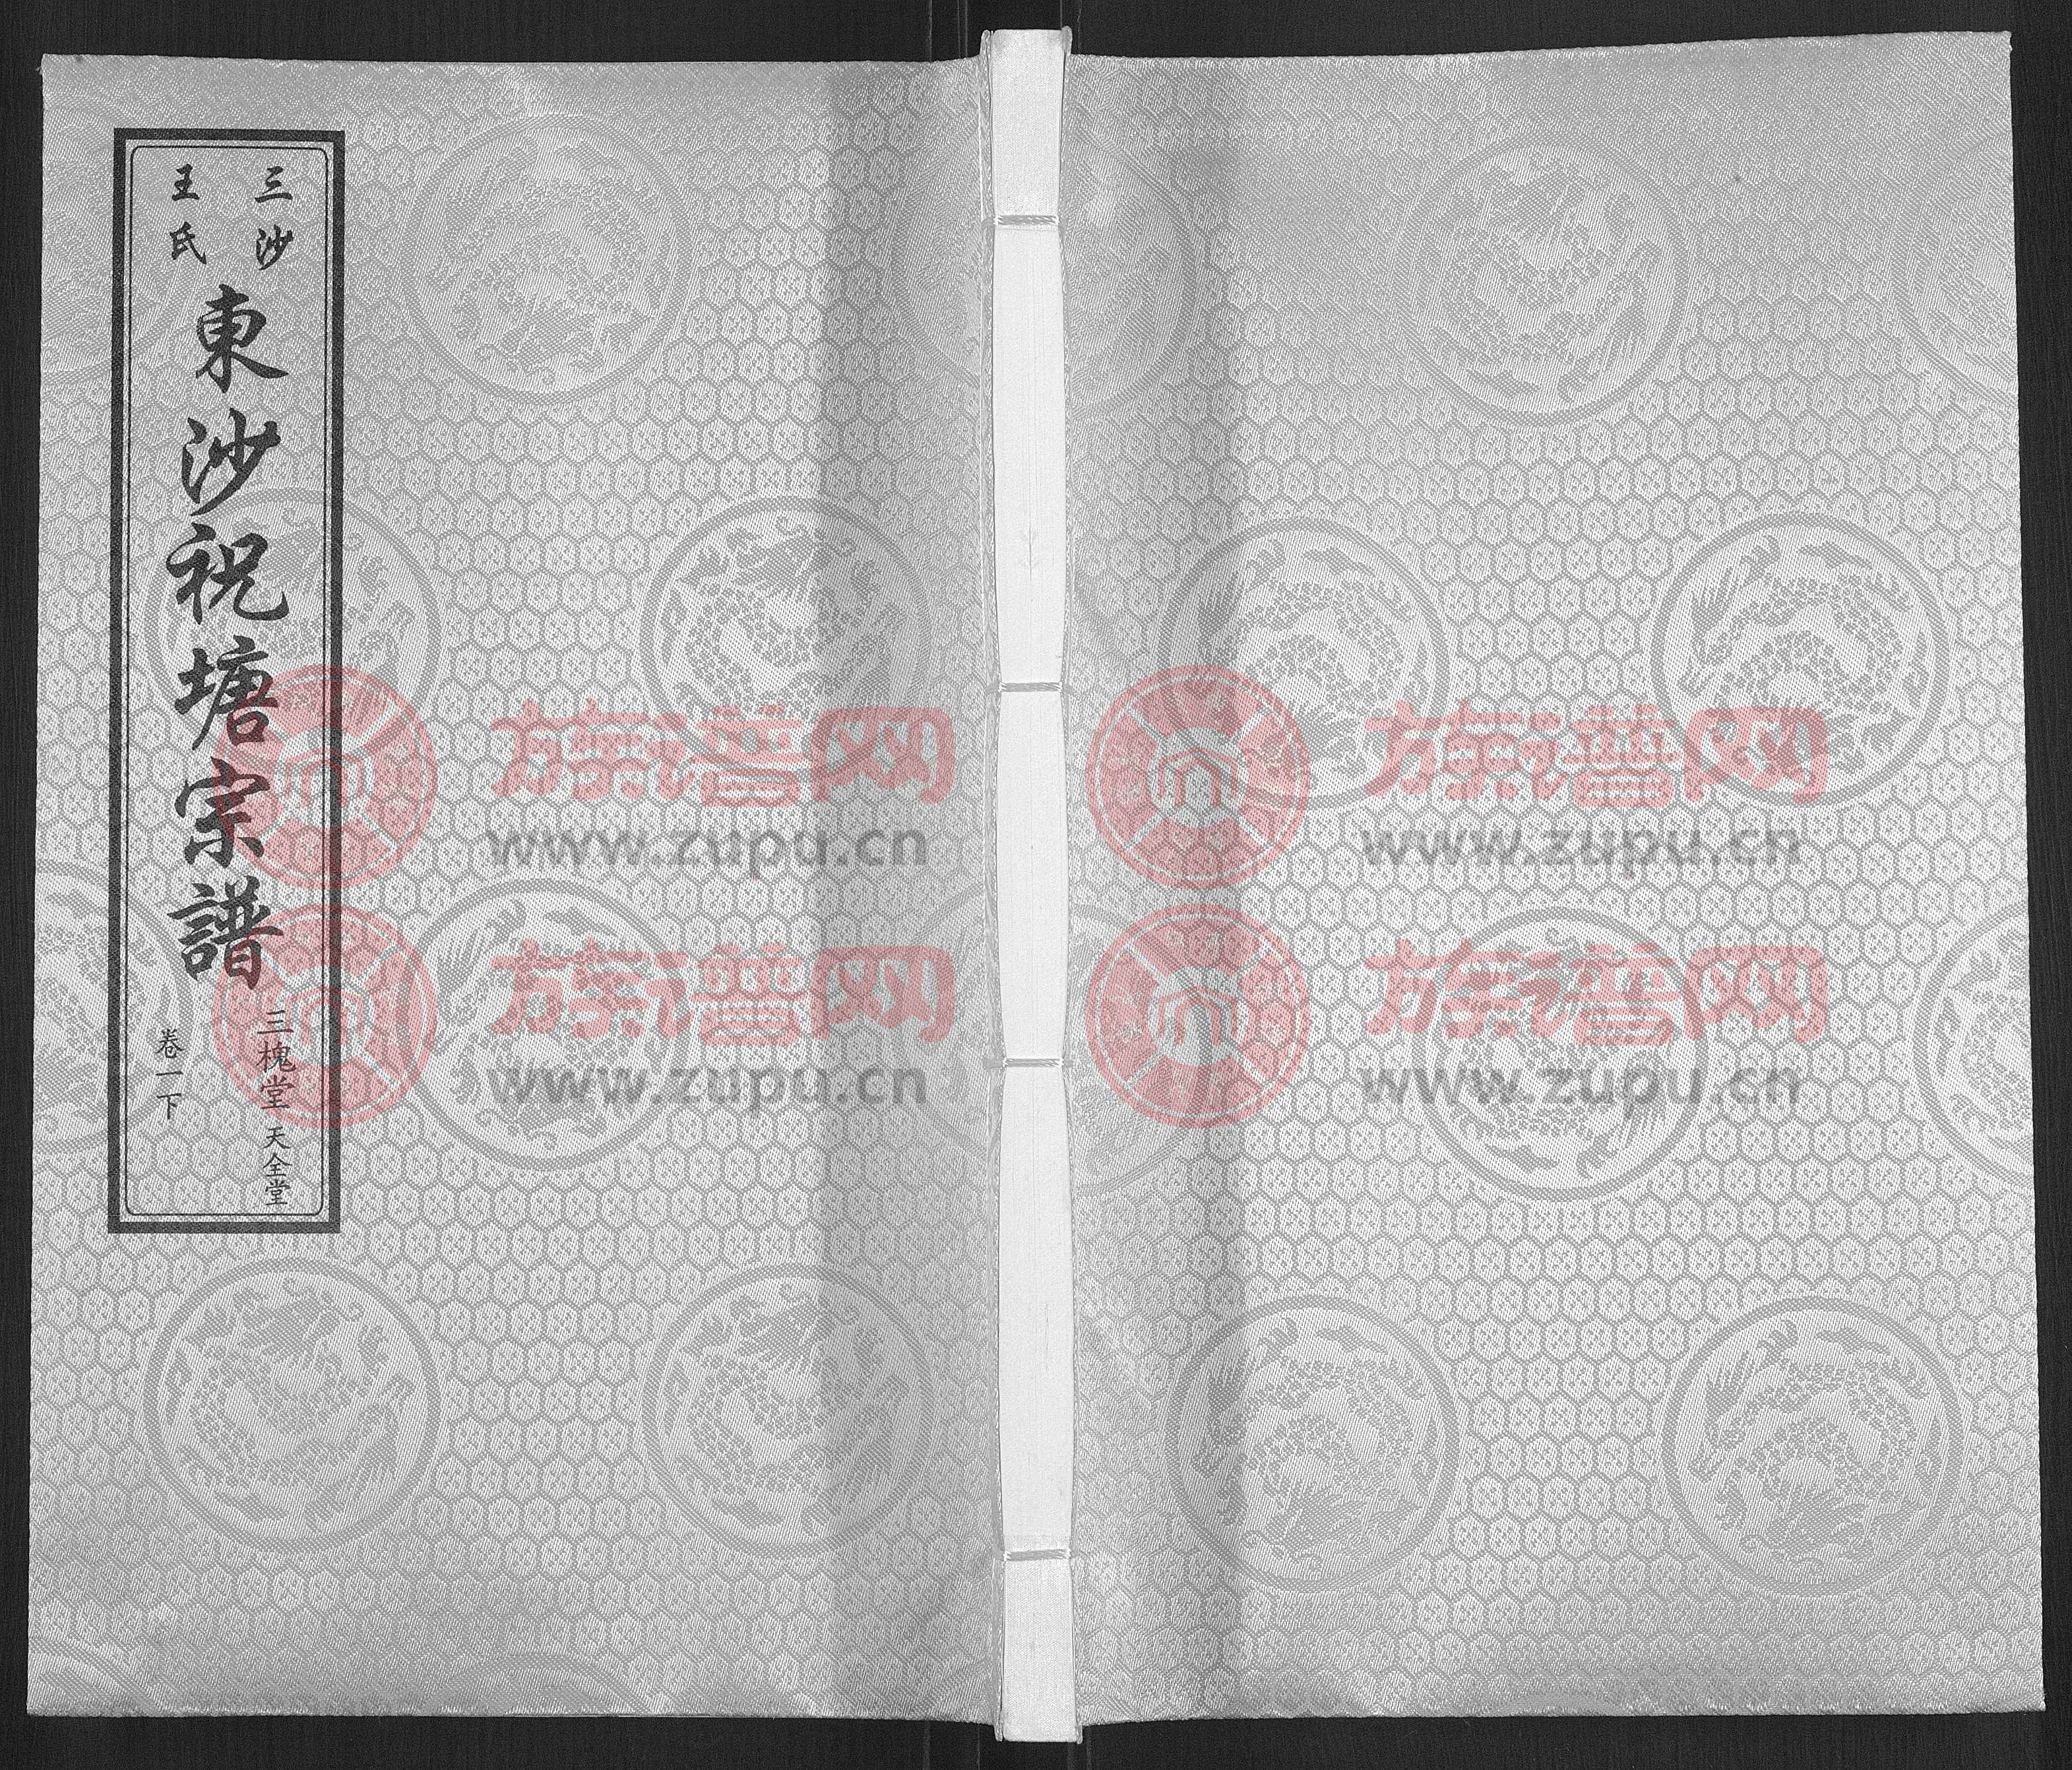 三沙
王氏
東沙祝塘宗譜
三槐堂 天全堂
卷一下
族谱网
www.zupu.cn
族谱网
www.zupu.cn
族谱网
www.zupu.cn
族谱网
www.zupu.cn